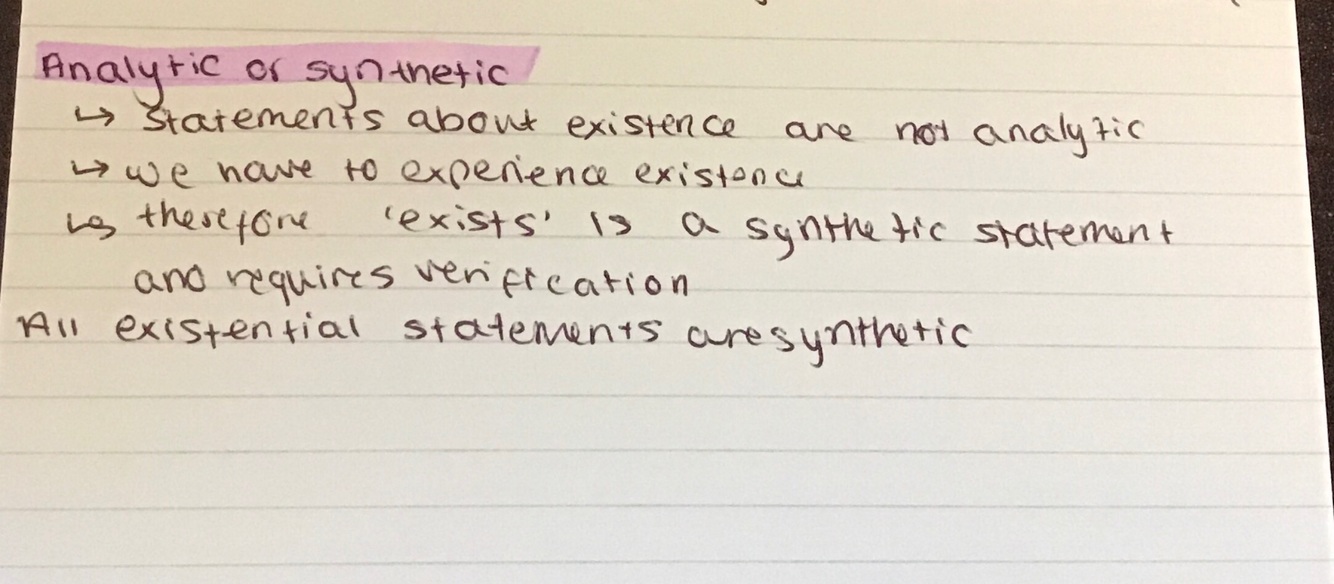 Analytic or synthetic
↳ Statements about existence are not analytic
↳ we have to experience existence
↳ therefore 'exists' is a synthetic statement
and requires verification
All existential statements are synthetic